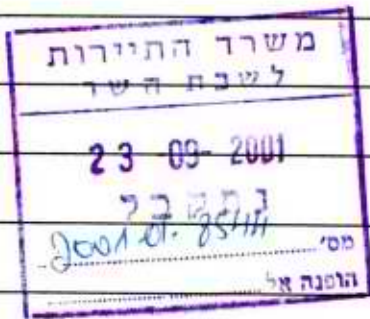 משרד התיירות
לשכת השר
23 -09- 2001
נתקבל
מס'
הופנה אל